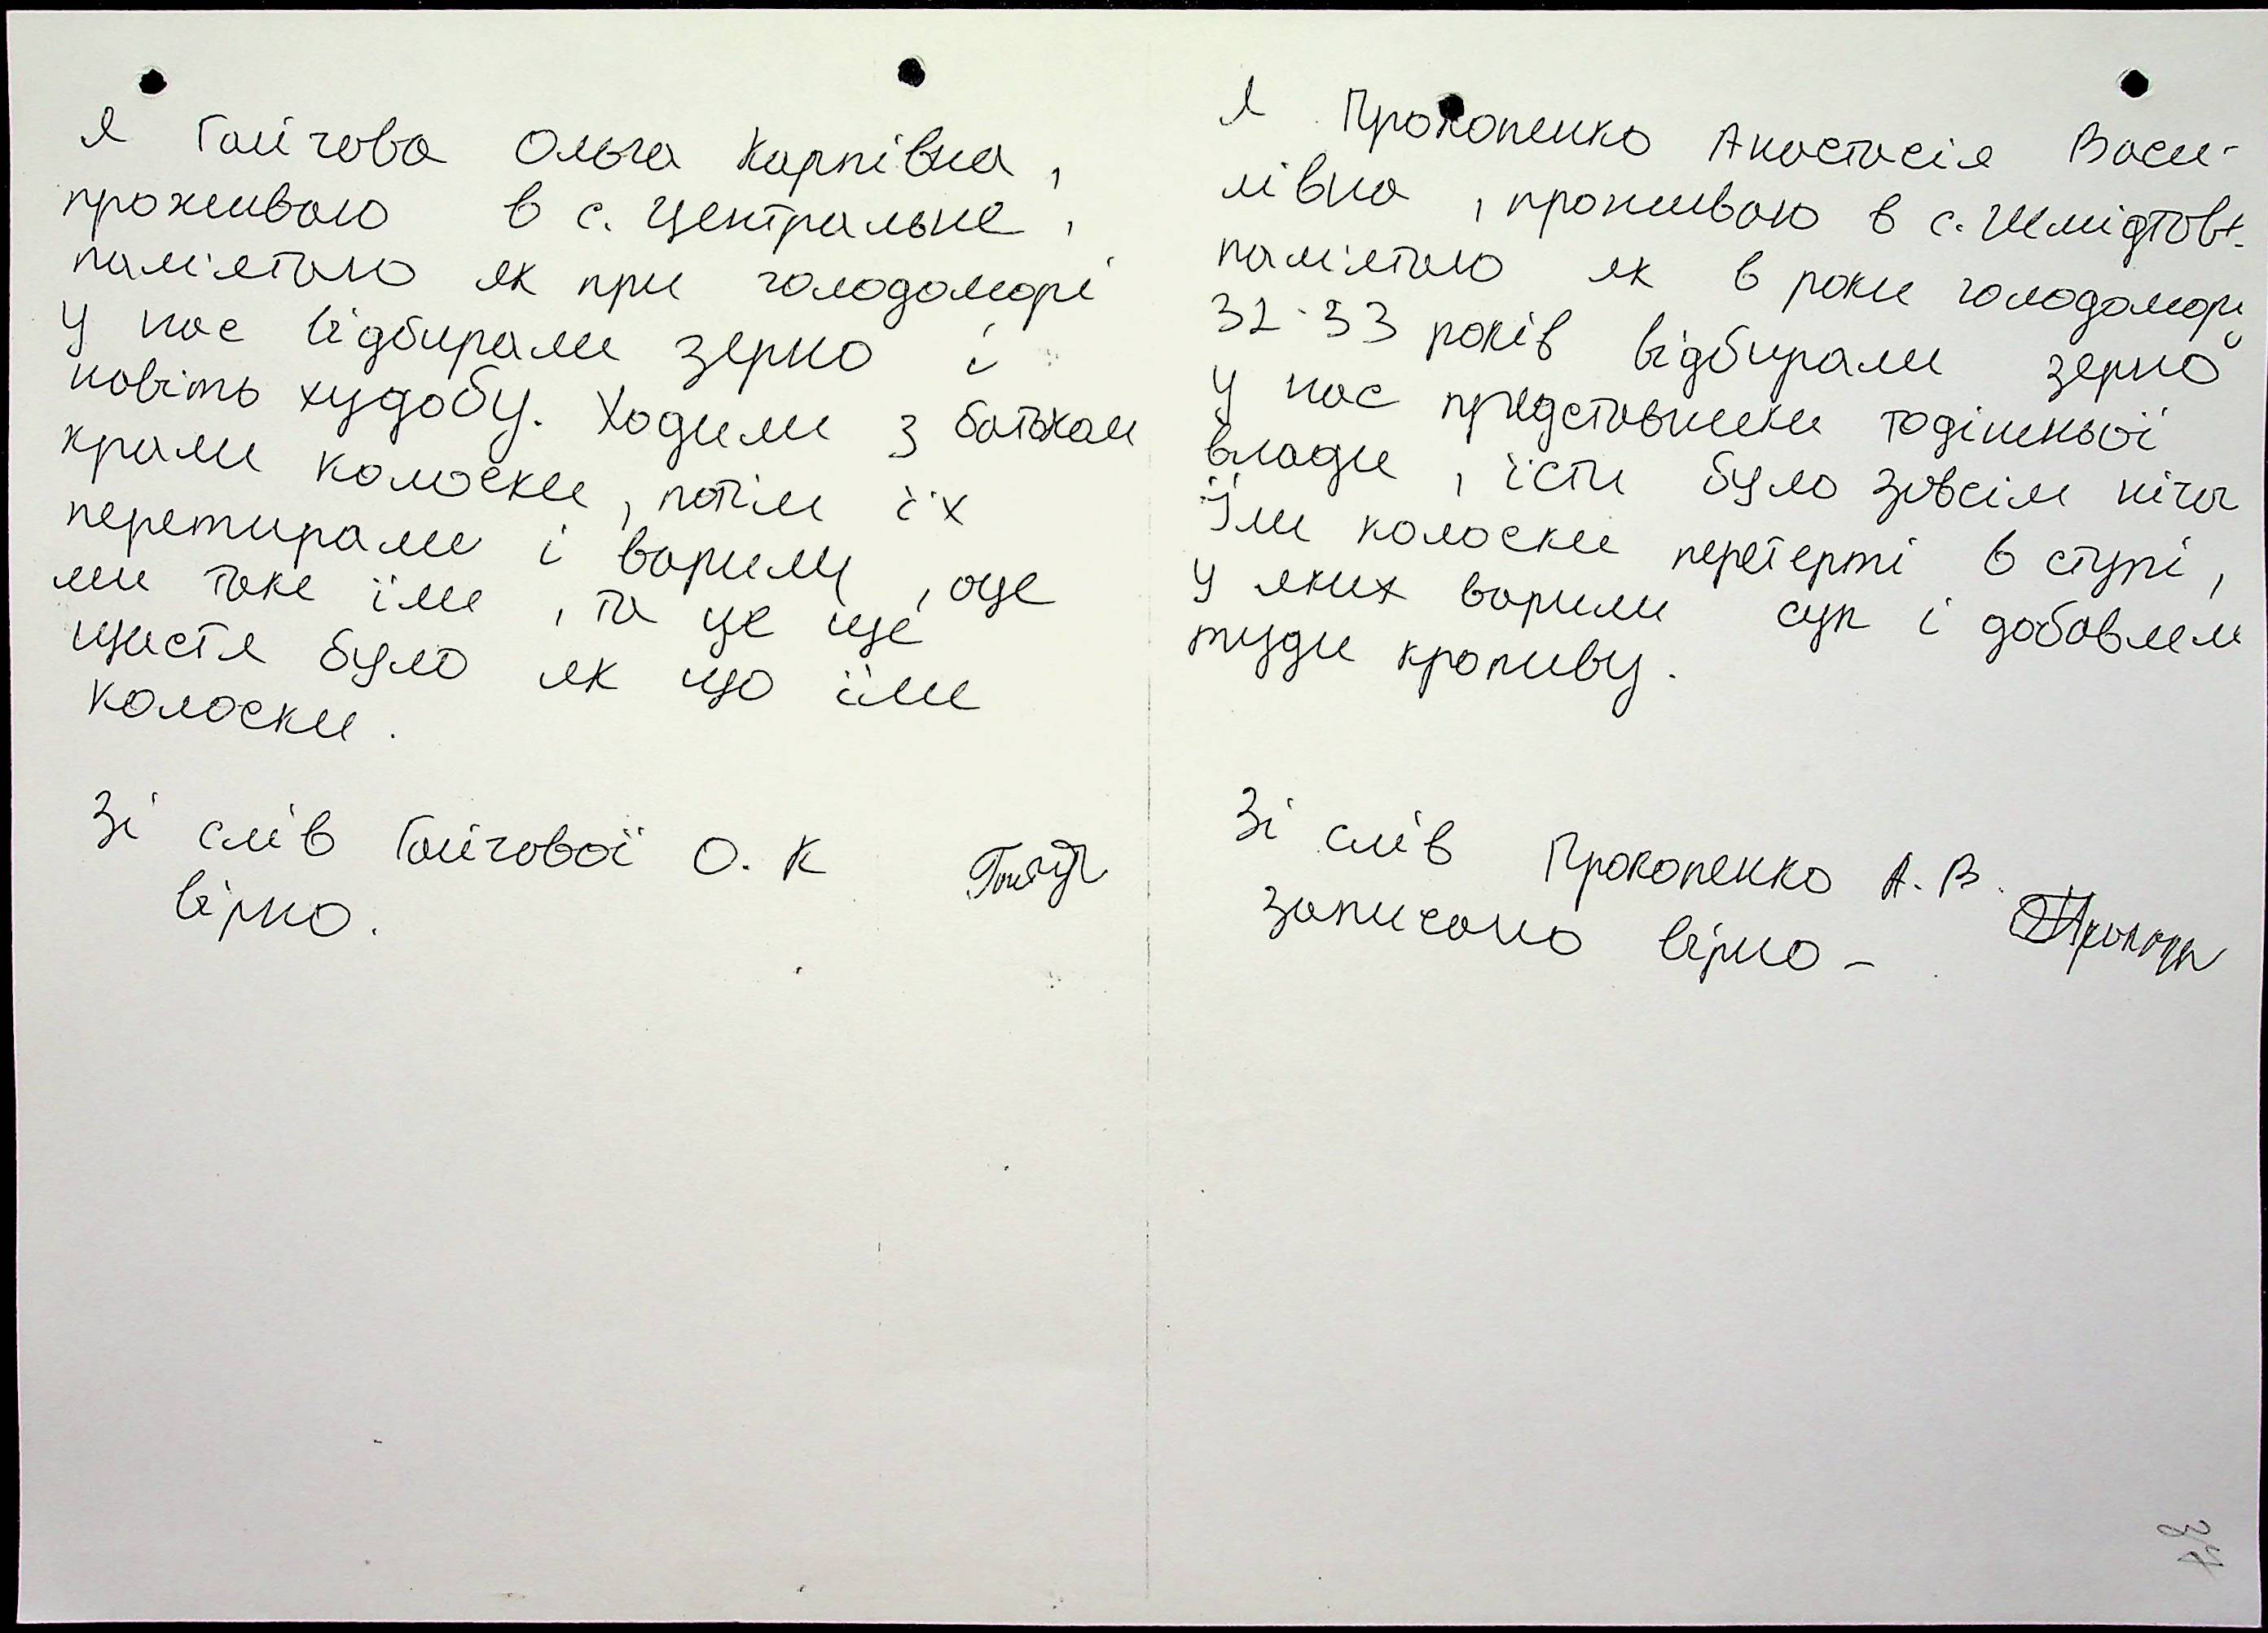 Я Гайгова Ольга Карпівна,
проживаю в с. Центральне,
пам'ятаю як при голодоморі
у нас відбирали зерно і
навіть худобу. Ходили з батьком
крали колоски, потім їх
перетирали і варили, оце
ми таке їли, та це ще
щастя було як що їли
колоски.
Зі слів Гайгової О. К
вірно.
Я Прокопенко Анастасія Васи-
лівна, проживаю в с. Шмідтовк
пам'ятаю як в роки голодомори
32-33 років відбирали зерно
у нас представники тодішньої
влади, їсти було зовсім нічог
Їли колоски перетерті в ступі,
у яких варили суп і добавляли
туди кропиву.
Зі слів Прокопенко А. В.
записано вірно -